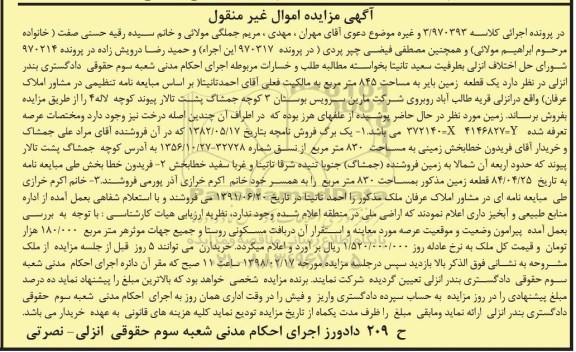 آگهی مزایده اموال غیر منقول
در پرونده اجرائی کلاسه ۳/۹۷۰۳۹۳ و غیره موضوع دعوی آقای مهران ، مهدی ، مریم جملگی مولائی و خانم سیده رقیه حسنی صفت ( خانواده
مرحوم ابراهیم مولائی) و همچنین مصطفی فیضی چپر پردی ( در پرونده ۹۷۰۳۱۷ این اجراء) و حمید رضا درویش زاده در پرونده ۹۷۰۲۱۴
شورای حل اختلاف انزلی بطرفیت سعید تائبتا بخواسته مطالبه طلب و خسارات مربوطه اجرای احکام مدنی شعبه سوم حقوقی دادگستری بندر
انزلی در نظر دارد یک قطعه زمین بایر به مساحت ۸۴۵ متر مربع به مالکیت فعلی آقای احمدتائبتا( بر اساس مبایعه نامه تنظیمی در مشاور املاک
عرفان) واقع درانزلی قریه طالب آباد روبروی شرکت بنزین سرویس بوستان ۳ کوچه جمشاگ پشت تالار پیوند کوچه لاله۴ را از طریق مزایده
بفروش برساند. زمین مورد نظر در حال حاضر پوشیده از علفهای هرز بوده که در اطراف آن چندین اصله درخت نیز وجود دارد ومختصات عرصه
تعرفه شده Y=۴۱۴۶۸۲۷ X=۳۷۲۱۴۰ می باشد.۱- یک برگ فروش نامچه بتاریخ ۱۳۸۲/۰۵/۱۷ که در آن فروشنده آقای مراد علی جمشاگ
و خریدار آقای فریدون خطابخش زمینی به مساحت ۸۳۰ متر مربع از نسق شماره ۳۲۷۲۸-۱۳۵۶/۱۰/۲۷ به آدرس کوچه جمشاگ پشت تالار
پیوند که حدود اربعه آن شمالا به زمین فروشنده (جمشاگ) جنوبا تنیده شرقا تائبتا و غربا سعید خطابخش ۲- فریدون خطا بخش طی مبایعه نامه
به تاریخ ۸۴/۰۴/۲۵ قطعه زمین مذکور بمساحت ۸۳۰ متر مربع را به همسر خود خانم اکرم خرازی آذر پورمی فروشند.۳- خانم اکرم خرازی
طی مبایعه نامه ای در مشاور املاک عرفان ملک مذکور را احمد تائبتا در تاریخ ۱۳۹۱/۰۶/۲۰ می فروشند و با استعلام شفاهی بعمل آمده از اداره
منابع طبیعی و آبخیز داری اعلام نمودند که اراضی ملی در منطقه اعلام شده وجود ندارد. نظریه ارزیابی هیات کارشناسی : با توجه به بررسی
بعمل آمده پیرامون وضعیت و موقعیت عرصه مورد معاینه و استقرار آن دربافت مسکونی روستا و جمیع جهات موثرهر متر مربع ۱۸۰/۰۰۰ هزار
تومان و قیمت کل ملک به نرخ عادله روز ۱/۵۲۰/۰۰۰/۰۰۰ ریال برآورد و اعلام میگردد. خریداران می توانند ۵ روز قبل از جلسه مزایده از ملک
مشروحه به نشانی فوق الذکر بالا بازدید سپس درجلسه مزایده مورخه ۱۳۹۸/۰۲/۱۷ ساعت ۱۱ صبح که مقر آن دائره اجرای احکام مدنی شعبه
سوم حقوقی دادگستری بندر انزلی تعیین گردیده شرکت نمایند. برنده مزایده شخصی خواهد بود که بالاترین مبلغ را پیشنهاد نماید ده درصد
مبلغ پیشنهادی را در روز مزایده به حساب سپرده دادگستری واریز و فیش را در وقت اداری همان روز به اجرای احکام مدنی شعبه سوم حقوقی
دادگستری بندر انزلی ارائه نماید ومابقی مبلغ را ظرف مدت یکماه از تاریخ مزایده تودیع نماید کلیه هزینه های قانونی به عهده خریدار می باشد.
ح ۲۰۹ دادورز اجرای احکام مدنی شعبه سوم حقوقی انزلی- نصرتی